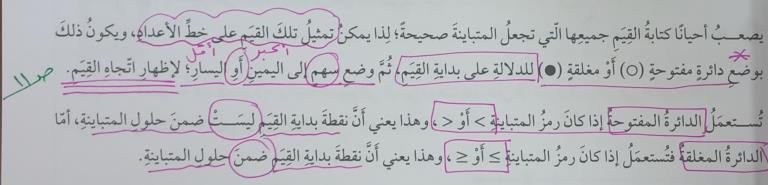 يصعبُ أحيانًا كتابةُ القِيَمِ جميعِها الّتي تجعلُ المتباينةَ صحيحةً؛ لِذا يمكنُ تمثيلُ تلكَ القِيَمِ على خطِّ الأعدادِ، ويكونُ ذلكَ
أكبر أقل
بوضعِ دائرةٍ مفتوحةٍ (○) أَوْ مغلقةٍ (●) للدلالةِ على بدايةِ القِيَمِ، ثُمَّ وضعِ سهمٍ إلى اليمينِ أَوِ اليسارِ؛ لإظهارِ اتّجاهِ القِيَمِ.
ص ١١
تُستعمَلُ الدائرةُ المفتوحةُ إذا كانَ رمزُ المتباينةِ > أَوْ <، وهذا يعني أَنَّ نقطةَ بدايةِ القِيَمِ ليسَتْ ضمنَ حلولِ المتباينةِ، أمّا
الدائرةُ المغلقةُ فتُستعمَلُ إذا كانَ رمزُ المتباينةِ ≥ أَوْ ≤، وهذا يعني أَنَّ نقطةَ بدايةِ القِيَمِ ضمنَ حلولِ المتباينةِ.